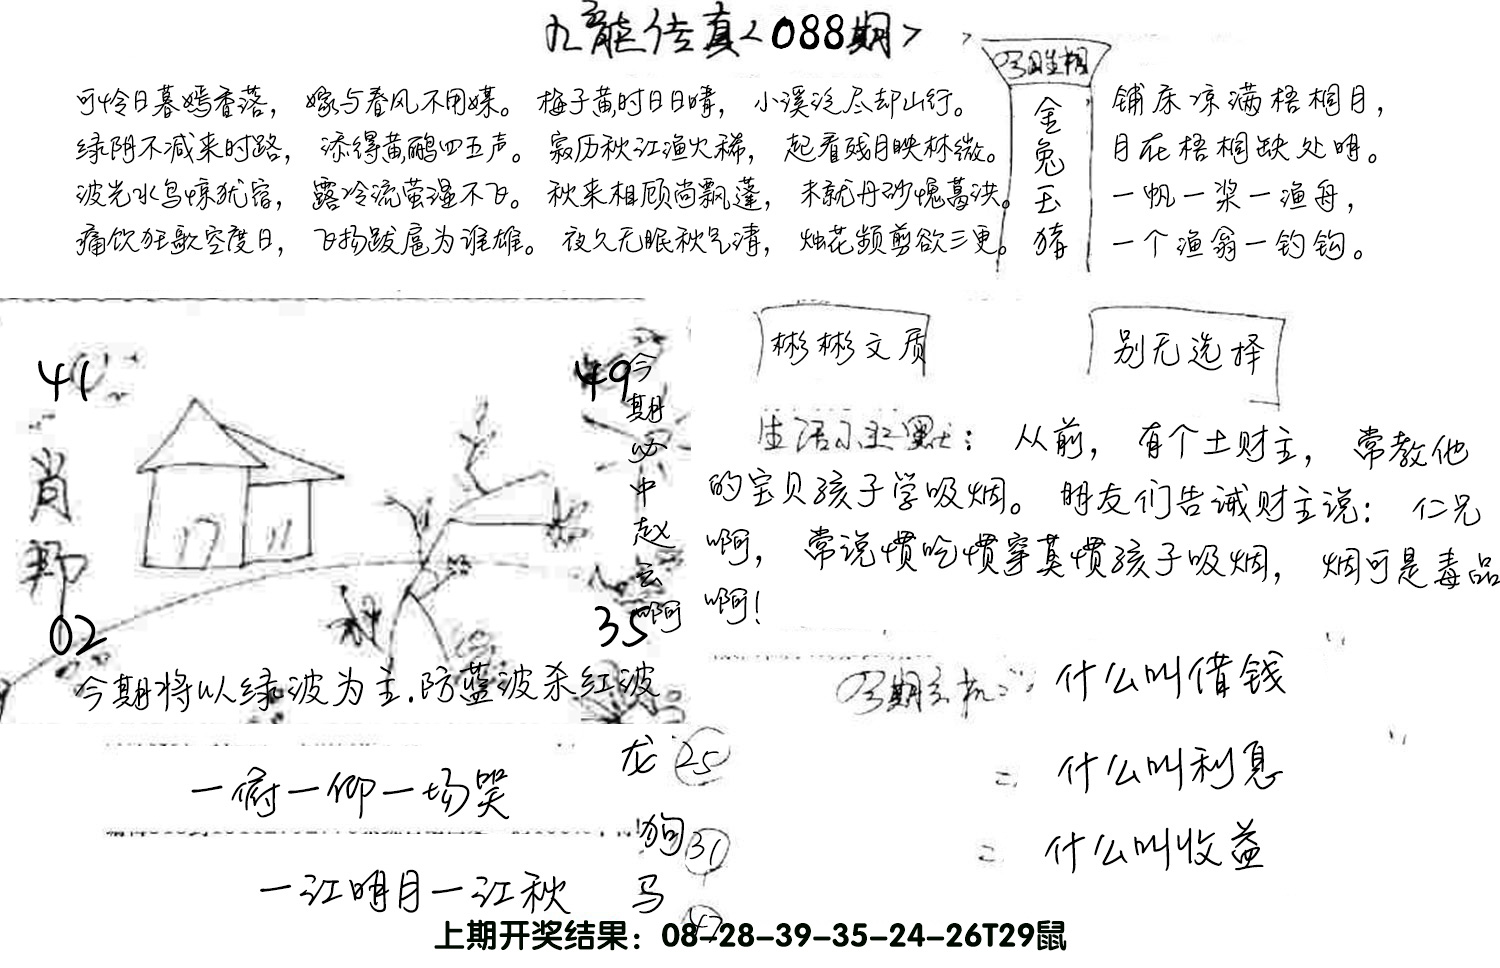 九龙传真<088期>
可怜日暮嫣香落，嫁与春风不用媒。梅子黄时日日晴，小溪泛尽却山行。
绿阴不减来时路，添得黄鹂四五声。寂历秋江渔火稀，起看残月映林微。
波光水鸟惊犹宿，露冷流萤湿不飞。秋来相顾尚飘蓬，未就丹砂愧葛洪。
痛饮狂歌空度日，飞扬跋扈为谁雄。夜久无眠秋气清，烛花频剪欲三更。
今日生相
金兔玉猪
铺床凉满梧桐月，
月在梧桐缺处明。
一帆一桨一渔舟，
一个渔翁一钓钩。
41
49
肖
02
35
今期必中赵云啊
今期将以绿波为主.防蓝波杀红波
彬彬文质
别无选择
生活小幽默：从前，有个土财主，常教他
的宝贝孩子学吸烟。朋友们告诫财主说：仁兄
啊，常说惯吃惯穿莫惯孩子吸烟，烟可是毒品
啊！
今期玄机：什么叫借钱
什么叫利息
什么叫收益
一俯一仰一场笑
一江明月一江秋
龙 25
狗 31
马
上期开奖结果：08-28-39-35-24-26T29鼠